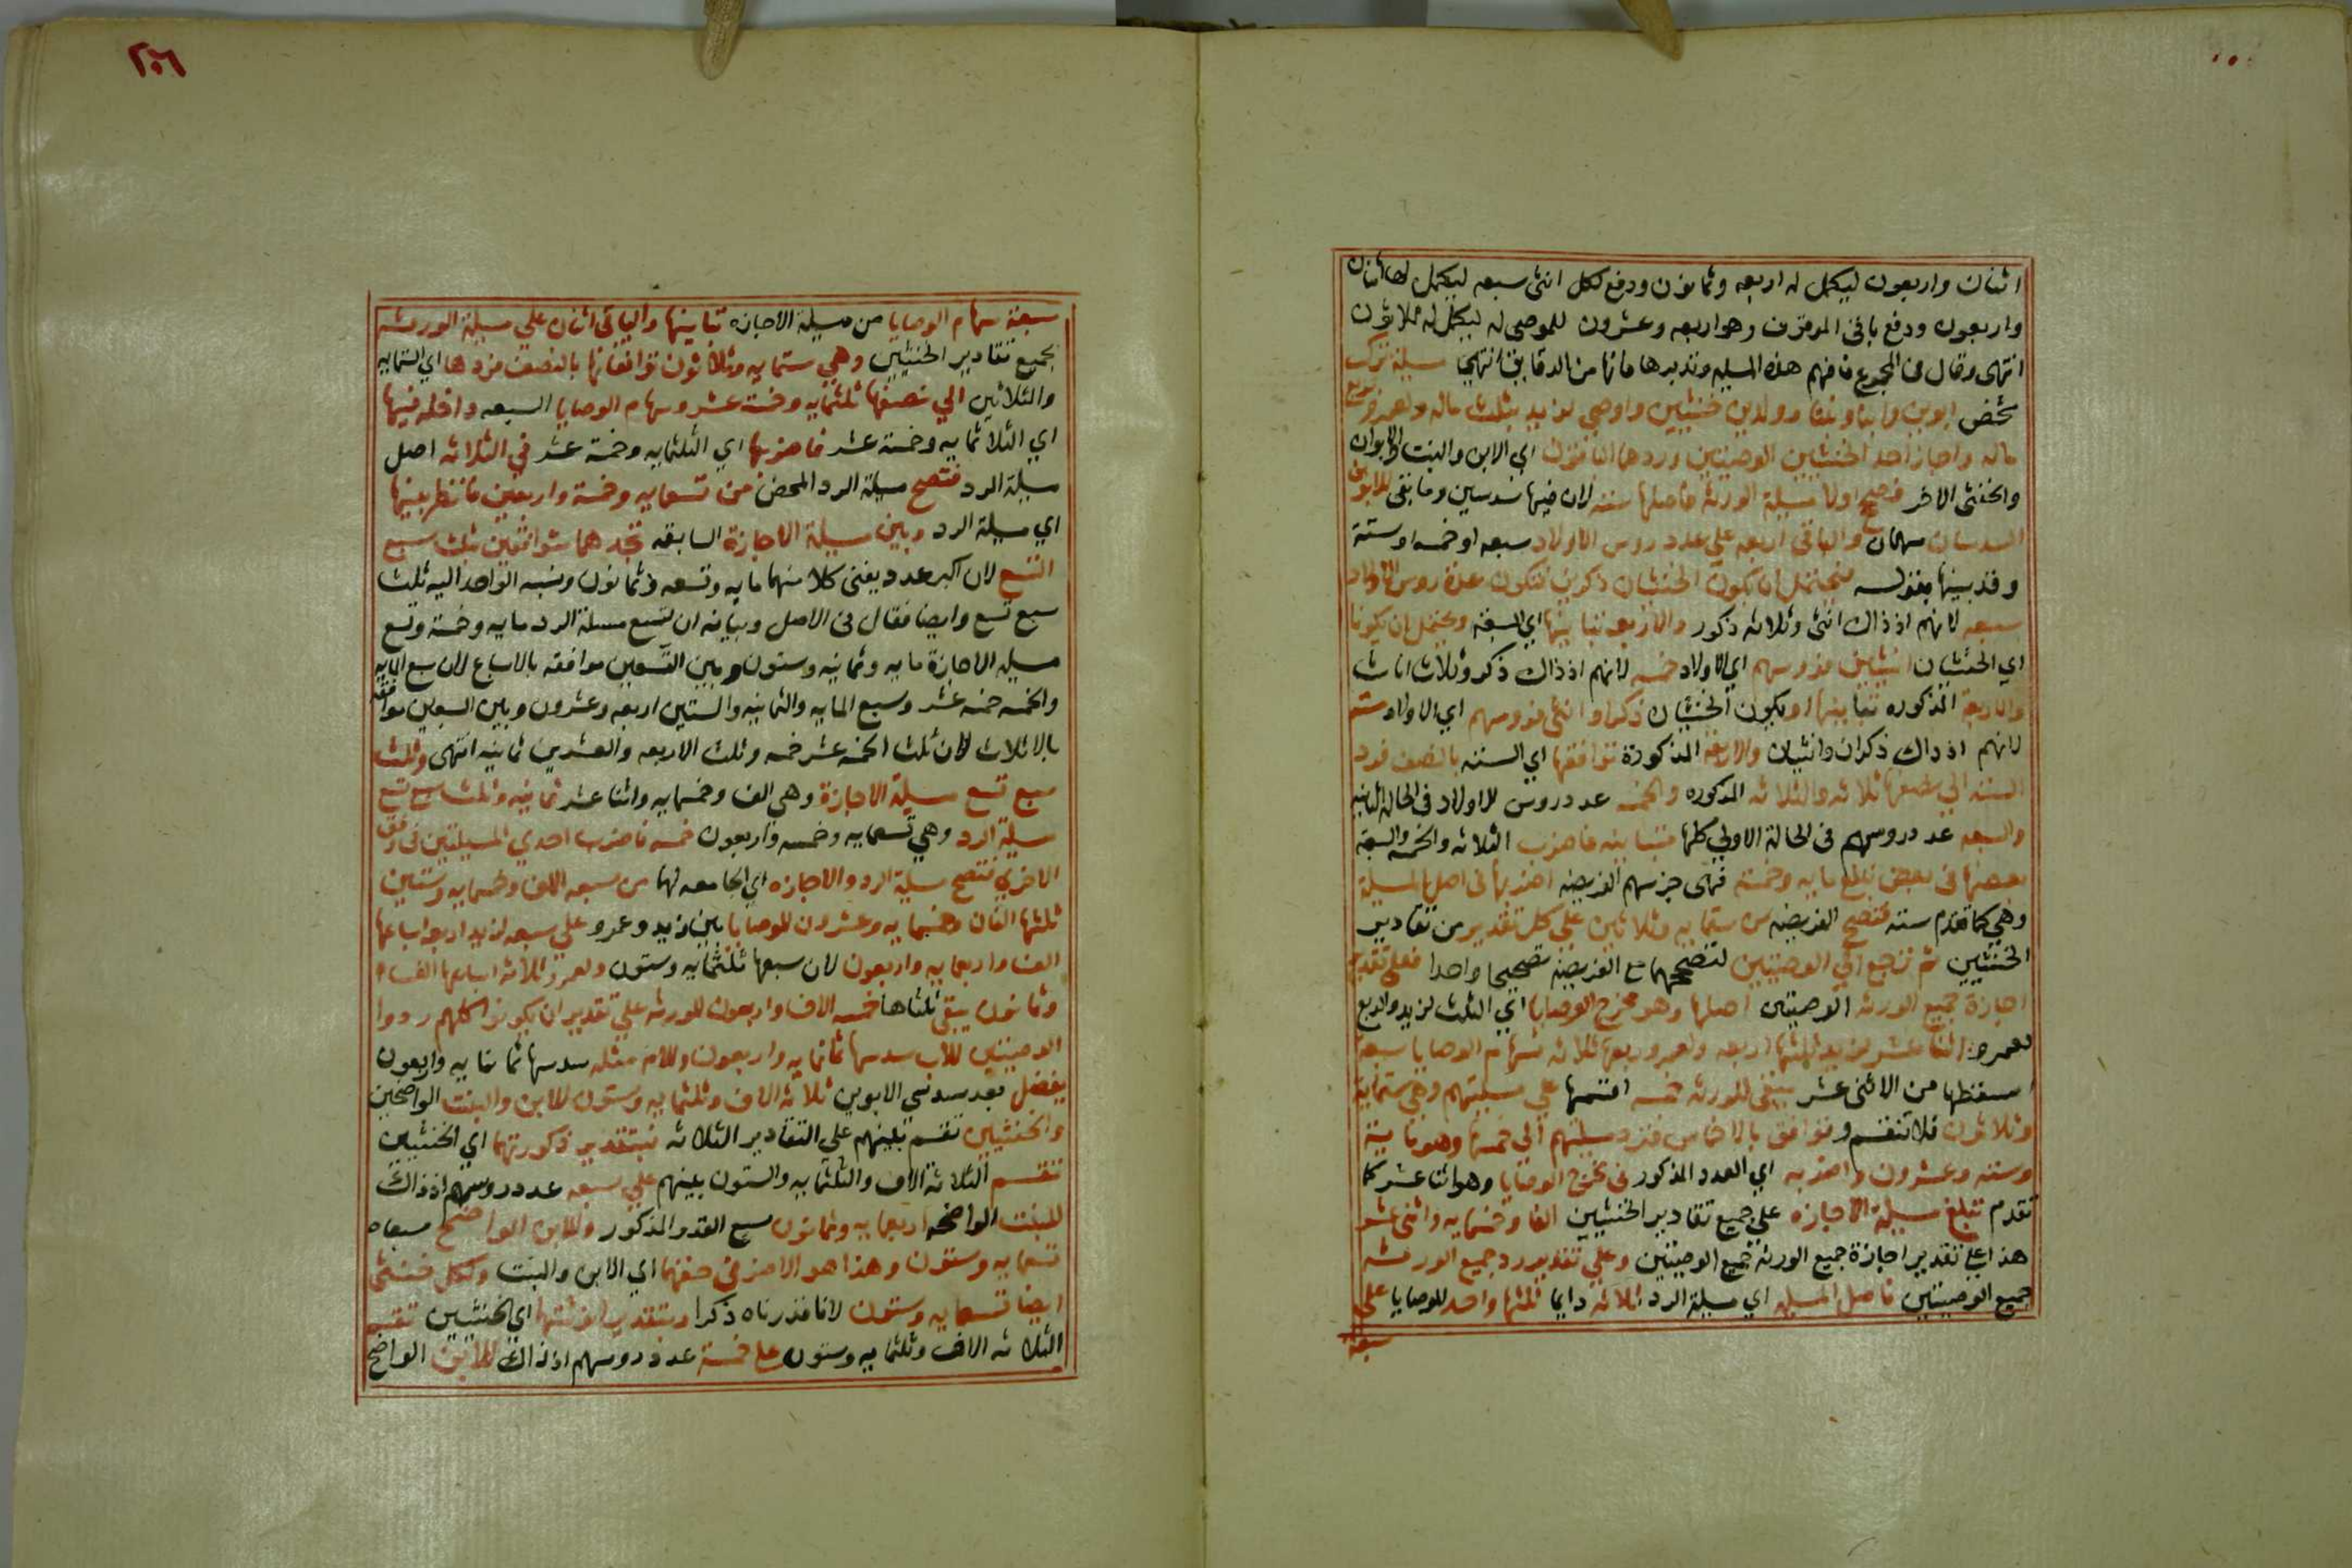 اثنان واربعون ليكمل له اربعه وثمانون ودفع لكل انثى سبعه ليكمل لها اثنان
واربعون ودفع باقى الموقوف وهو اربعه وعشرون للموصى له ليكمل له ثلاثون
انتهى وقال فى المجموع فافهم هذه المسيله وتدبرها فانها من الدقايق انتهى مسيلة ترك
شخص ابوين وابنا وبنتا وولدين خنثيين واوصى لزيد بثلث ماله ولعمرو بربع
ماله واجاز احد الخنثيين الوصيتين وردهما الباقون اى الابن والبنت والابوان
والخنثى الاخر فصحح اولا مسيلة الورثه فاصلها سته لان فيها سدسين وما بقى للابوين
السدسان سهمان والباقى اربعه على عدد روس الاولاد سبعه او خمسه او ستة
وقد بينها بقوله فيحتمل ان يكون الخنثيان ذكرين فتكون عدة روس الاولاد
سبعه لانهم اذ ذاك انثى وثلاثه ذكور والاربعه تباينها اي السبعة ويحتمل ان يكونا
اي الخنثيان انثيين فروسهم اي الاولاد خمسه لانهم اذ ذاك ذكر وثلاث اناث
والاربعة المذكوره تباينها او يكون الخنثيان ذكرا وانثى فروسهم اي الاولاد سته
لانهم اذ ذاك ذكران وانثيان والاربعة المذكورة توافقها اي السته بالنصف فرد
السته الي نصفها ثلاثه والثلاثه المذكوره والخمسه عدد روس الاولاد فى الحالة الثانيه
والسبعه عدد روسهم فى الحالة الاولى كلها متباينه فاضرب الثلاثه والخمسه والسبعة
بعضها فى بعض تبلغ مايه وخمسة فهى جزء سهم الفريضه اضربها فى اصل المسيلة
وهي كما تقدم سته فتصح الفريضه من ستمايه وثلاثين على كل تقدير من تقادير
الخنثيين ثم ترجع الي الوصيتين لتصححهما مع الفريضه تصحيحا واحدا فعلى تقدير
اجازة جميع الورثه الوصيتين اصلها وهو مخرج الوصايا اي الثلث لزيد والربع
لعمرو اثنا عشر لزيد ثلثها اربعه ولعمرو ربعها ثلاثه فسهام الوصايا سبعة
اسقطها من الاثنى عشر يبقى للورثه خمسه اقسمها على مسيلتهم وهي ستمايه
وثلاثون فلا تنقسم وتوافق بالاخماس فترد مسيلتهم الى خمسها وهو مايه
وسته وعشرون واضربه اي العدد المذكور فى مخرج الوصايا وهو اثنا عشر كما
تقدم تبلغ مسيلة الاجازه على جميع تقادير الخنثيين الفا وخمسمايه واثنى عشر
هذا على تقدير اجازة جميع الورثه جميع الوصيتين وعلى تقدير رد جميع الورثه
جميع الوصيتين فاصل المسيله اي مسيلة الرد ثلاثه دايما ثلثها واحد للوصايا على
سبعة
٢٠٦
سبعة سهام الوصايا من مسيلة الاجازه تباينها والباقى اثنان على مسيلة الورثه
بجميع تقادير الخنثيين وهي ستمايه وثلاثون توافقانها بالنصف فردها اي الستمايه
والثلاثين الي نصفها ثلثمايه وخمسة عشر وسهام الوصايا السبعه داخله فيها
اي الثلاثمايه وخمسة عشر فاضربها اي الثلثمايه وخمسة عشر في الثلاثه اصل
مسيلة الرد فتصح مسيلة الرد المحض من تسعمايه وخمسة واربعين فانظر بينها
اي مسيلة الرد وبين مسيلة الاجازة السابقه تجدهما متوافقين بثلث سبع
التسع لان اكبر عدد يفنى كلا منهما مايه وتسعه وثمانون ونسبه الواحد اليه ثلث
سبع تسع وايضا فقال فى الاصل وبيانه ان تسع مسيلة الرد مايه وخمسة وتسع
مسيلة الاجازة مايه وثمانيه وستون وبين التسعين موافقه بالاسباع لان سبع المايه
والخمسه خمسه عشر وسبع المايه والثمانيه والستين اربعه وعشرون وبين السبعين موافقه
بالاثلاث لان ثلث الخمسه عشر خمسه وثلث الاربعه والعشرين ثمانيه انتهى وثلث
سبع تسع مسيلة الاجازة وهي الف وخمسمايه واثنا عشر ثمانيه وثلث سبع تسع
مسيلة الرد وهي تسعمايه وخمسه واربعون خمسه فاضرب احدي المسيلتين فى وفق
الاخرى فتصح مسيلة الرد والاجازه اي الجامعه لهما من سبعه الاف وخمسمايه وستين
ثلثها الفان وخمسمايه وعشرون للوصايا بين زيد وعمرو على سبعه لزيد اربعة اسباعها
الف واربعمايه واربعون لان سبعها ثلثمايه وستون ولعمرو ثلاثه اسباعها الف
وثمانون يبقى ثلثاها خمسه الاف واربعون للورثه على تقدير ان يكونوا كلهم ردوا
الوصيتين للاب سدسها ثمانمايه واربعون وللام مثله سدسها ثمانمايه واربعون
يفضل بعد سدسي الابوين ثلاثه الاف وثلثمايه وستون للابن والبنت الواضحين
والخنثيين تقسم بينهم على التقادير الثلاثه فبتقدير ذكورتهما اي الخنثيين
تقسم الثلاثة الاف والثلثمايه والستون بينهم على سبعه عدد روسهم اذ ذاك
للبنت الواضحه اربعمايه وثمانون سبع القدر المذكور وللابن الواضح سبعاه
تسعمايه وستون وهذا هو الاضر فى حقهما اي الابن والبنت ولكل خنثى
ايضا تسعمايه وستون لانا قدرناه ذكرا وبتقدير انوثتهما اي الخنثيين تقسم
الثلاثه الاف وثلثمايه وستون على خمسة عدد روسهم اذ ذاك للابن الواضح